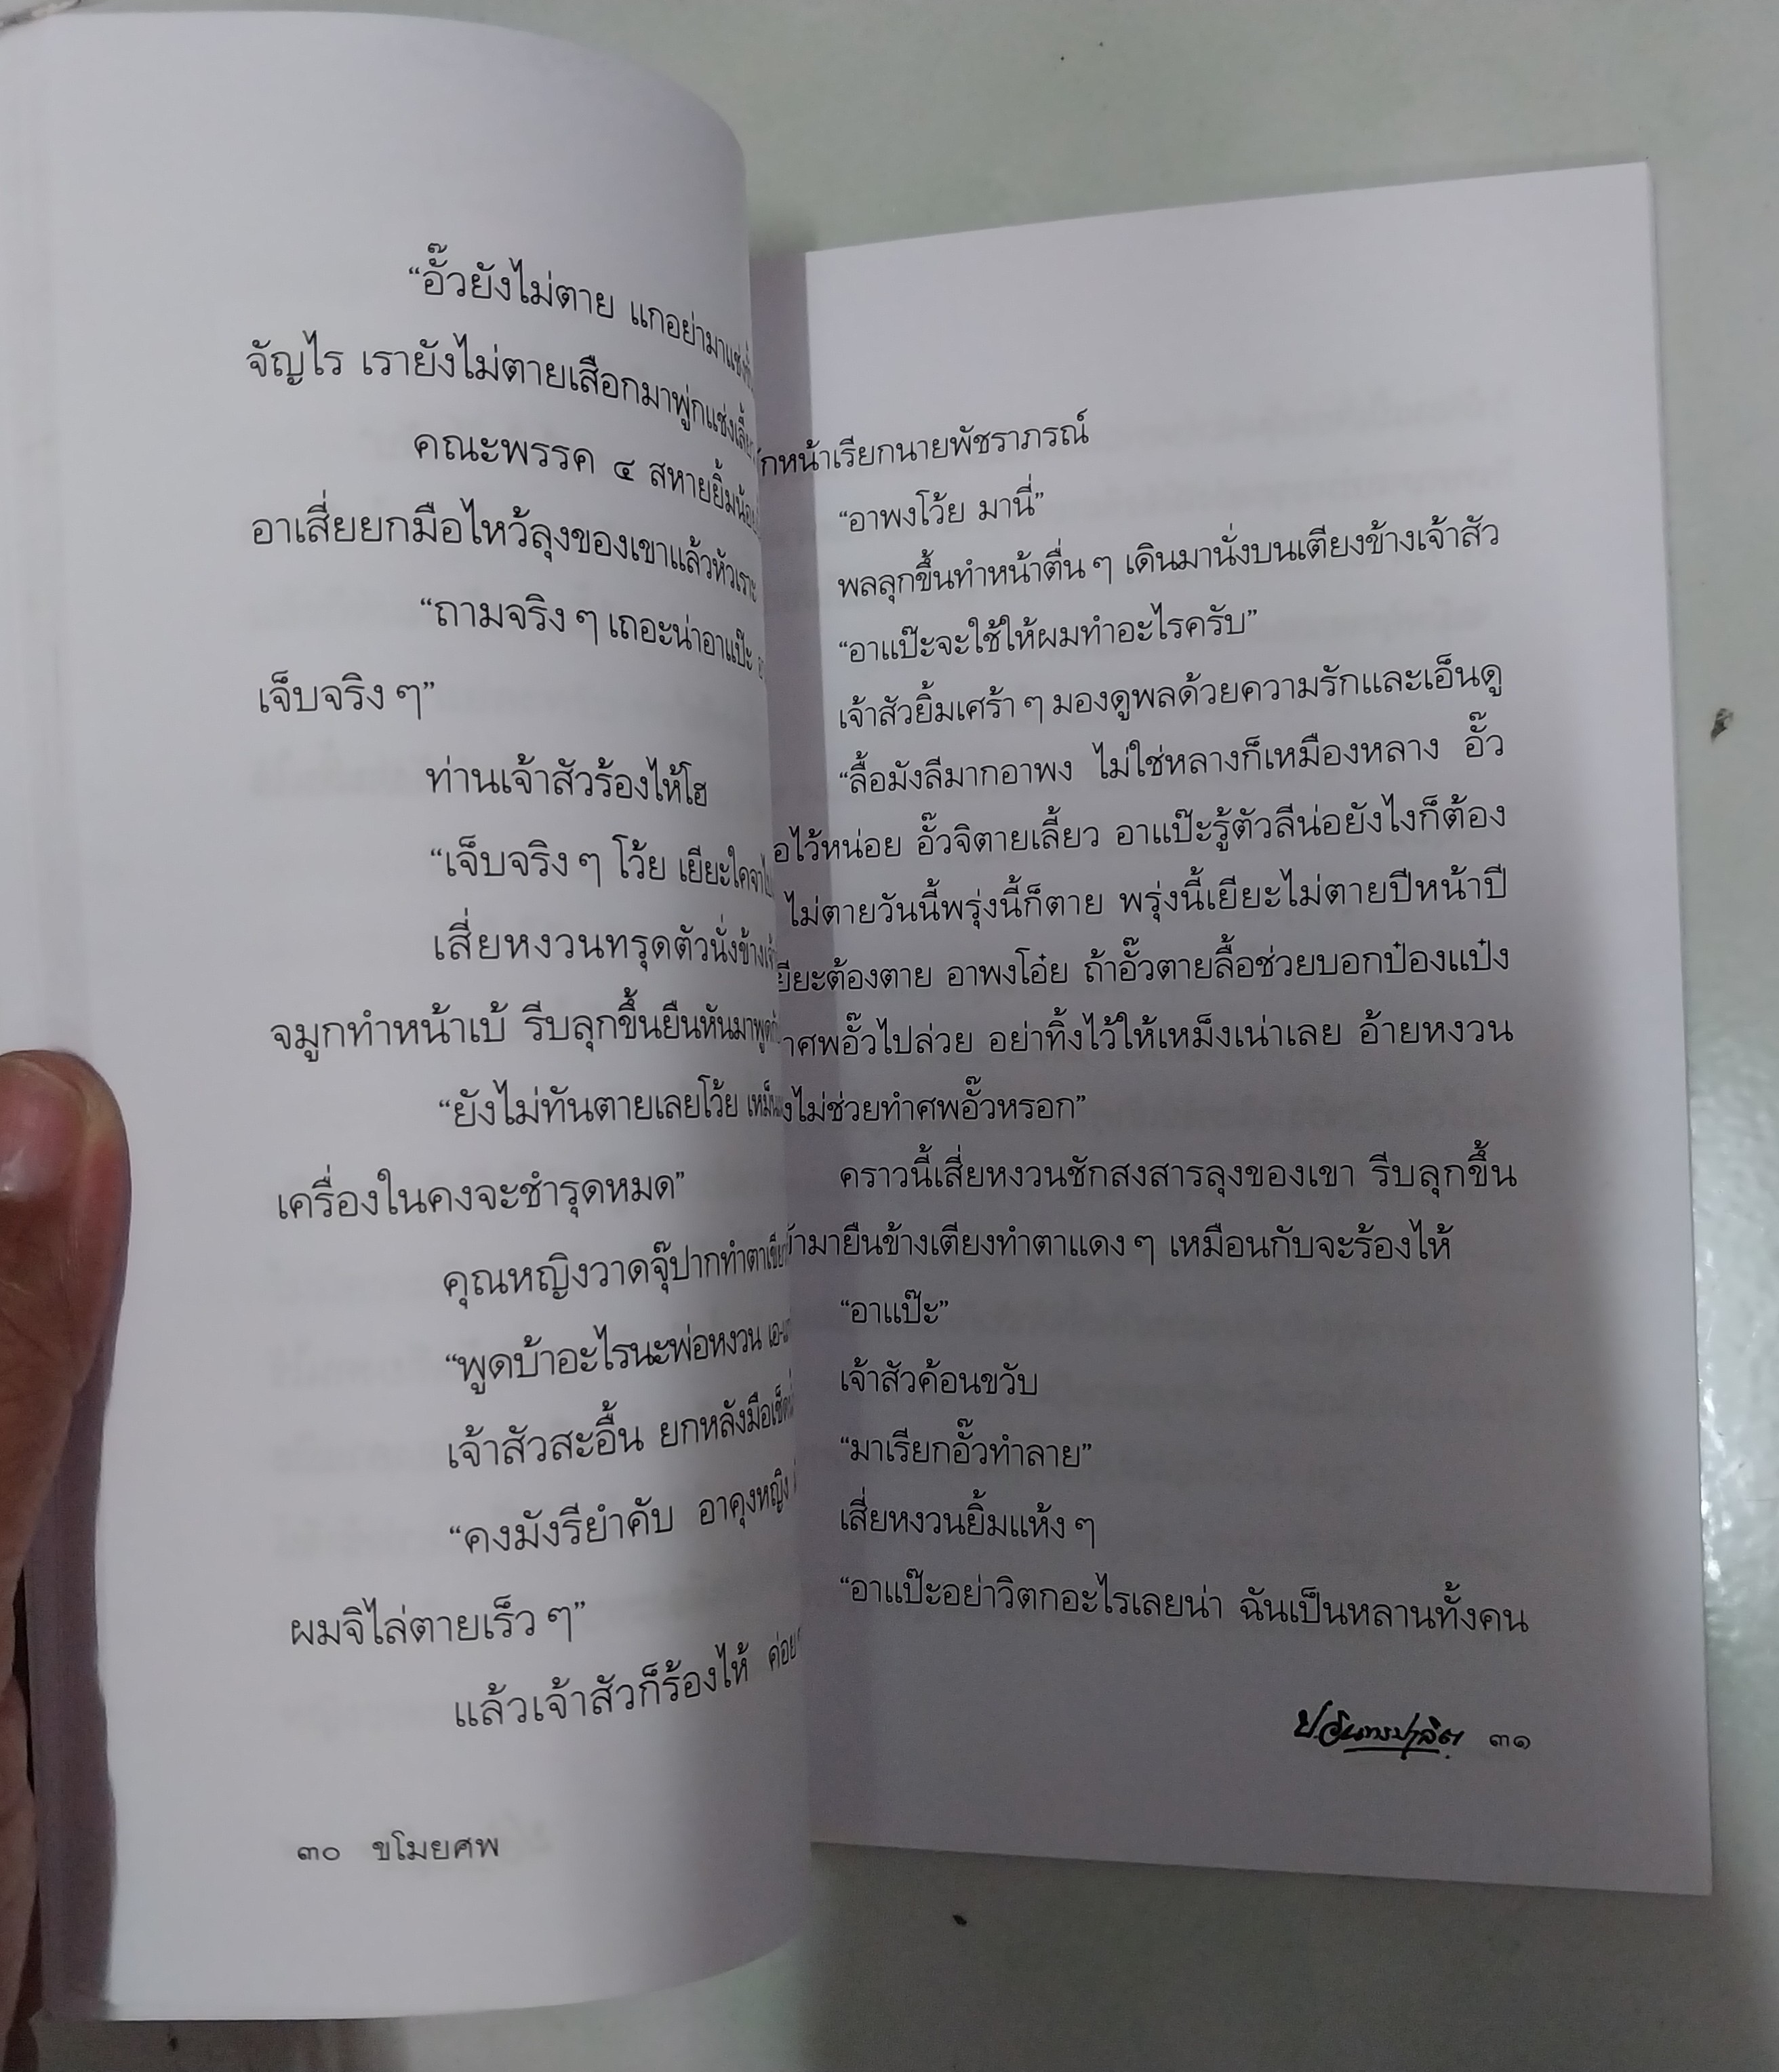 “อั๊วยังไม่ตาย แกอย่ามาแช่ง
จัญไร เรายังไม่ตายเสือกมาพู่กแช่งเลี้ย
คณะพรรค ๔ สหายยิ้มน้อย
อาเสี่ยยกมือไหว้ลุงของเขาแล้วหัวเราะ
“ถามจริง ๆ เถอะน่าอาแป๊ะ
เจ็บจริง ๆ”
ท่านเจ้าสัวร้องไห้โฮ
“เจ็บจริง ๆ โว้ย เยียะใคจา
เสี่ยหงวนทรุดตัวนั่งข้าง
จมูกทำหน้าเบ้ รีบลุกขึ้นยืนหันมาพูด
“ยังไม่ทันตายเลยโว้ย เหม็น
เครื่องในคงจะชำรุดหมด”
คุณหญิงวาดจุ๊ปากทำตาเขียว
“พูดบ้าอะไรนะพ่อหงวน
เจ้าสัวสะอื้น ยกหลังมือเช็ด
“คงมังรียำคับ อาคุงหญิง
ผมจิไล่ตายเร็ว ๆ”
แล้วเจ้าสัวก็ร้องไห้ ค่อย
๓๐ ขโมยศพ
กหน้าเรียกนายพัชราภรณ์
“อาพงโว้ย มานี่”
พลลุกขึ้นทำหน้าตื่น ๆ เดินมานั่งบนเตียงข้างเจ้าสัว
“อาแป๊ะจะใช้ให้ผมทำอะไรครับ”
เจ้าสัวยิ้มเศร้า ๆ มองดูพลด้วยความรักและเอ็นดู
“ลื้อมังลีมากอาพง ไม่ใช่หลางก็เหมืองหลาง อั๊ว
อไว้หน่อย อั๊วจิตายเลี้ยว อาแป๊ะรู้ตัวลีน่อยังไงก็ต้อง
ไม่ตายวันนี้พรุ่งนี้ก็ตาย พรุ่งนี้เยียะไม่ตายปีหน้าปี
ยียะต้องตาย อาพงโอ๋ย ถ้าอั๊วตายลื้อช่วยบอกป๋องแป๋ง
าศพอั๊วไปล่วย อย่าทิ้งไว้ให้เหม็งเน่าเลย อ้ายหงวน
งไม่ช่วยทำศพอั๊วหรอก”
คราวนี้เสี่ยหงวนชักสงสารลุงของเขา รีบลุกขึ้น
ข้ามายืนข้างเตียงทำตาแดง ๆ เหมือนกับจะร้องไห้
“อาแป๊ะ”
เจ้าสัวค้อนขวับ
“มาเรียกอั๊วทำลาย”
เสี่ยหงวนยิ้มแห้ง ๆ
“อาแป๊ะอย่าวิตกอะไรเลยน่า ฉันเป็นหลานทั้งคน
ป. อินทรปาลิต ๓๑